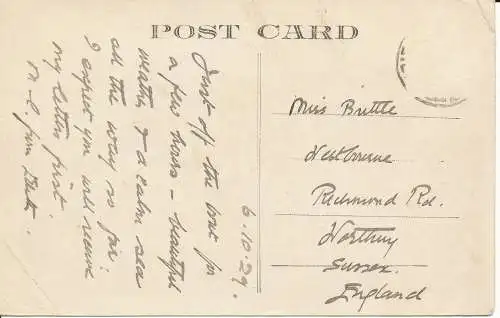 POST CARD
6.10.29.
Just off the boat for
a few hours – beautiful
weather & a calm sea
all the way so far.
I expect you will receive
my letter first.
M L from
Miss Brittle
Westbourne
Richmond Rd.
Worthing
Sussex.
England